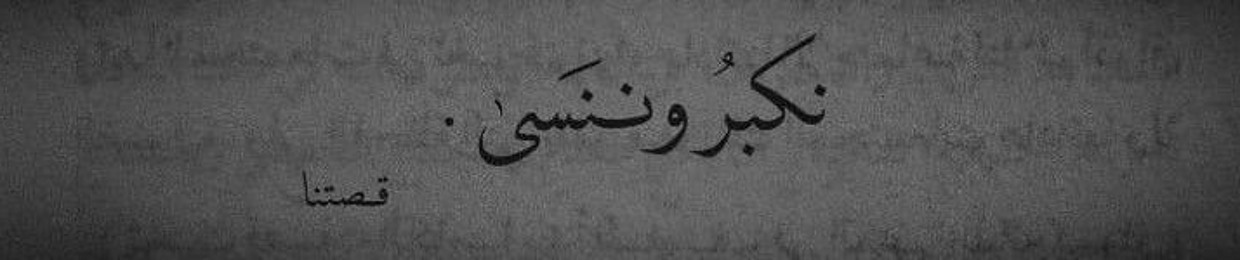 نكبرُ وننسَىٰ .
قصتنا